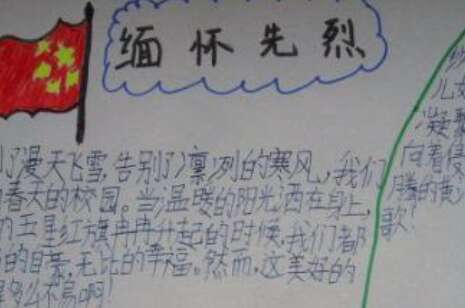 缅怀先烈
了漫天飞雪,告别了凛冽的寒风,我们
春天的校园。当温暖的阳光洒在身上,
的五星红旗冉冉升起的时候,我们都
的自豪,无比的幸福。然而,这美好的
多么不易啊!
儿女
凝聚
向着
腾的黄
歌!